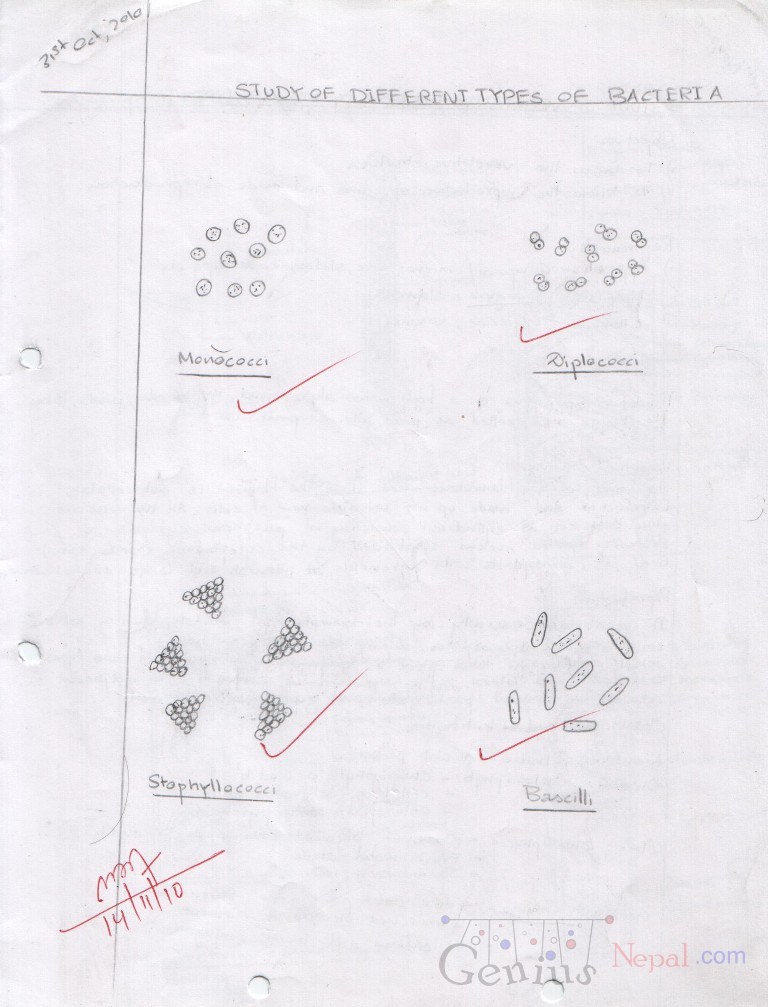 31st Oct, 2010
STUDY OF DIFFERENT TYPES OF BACTERIA
Monococci
Diplococci
Staphyllococci
Bascilli
14/11/10
Genius Nepal .com